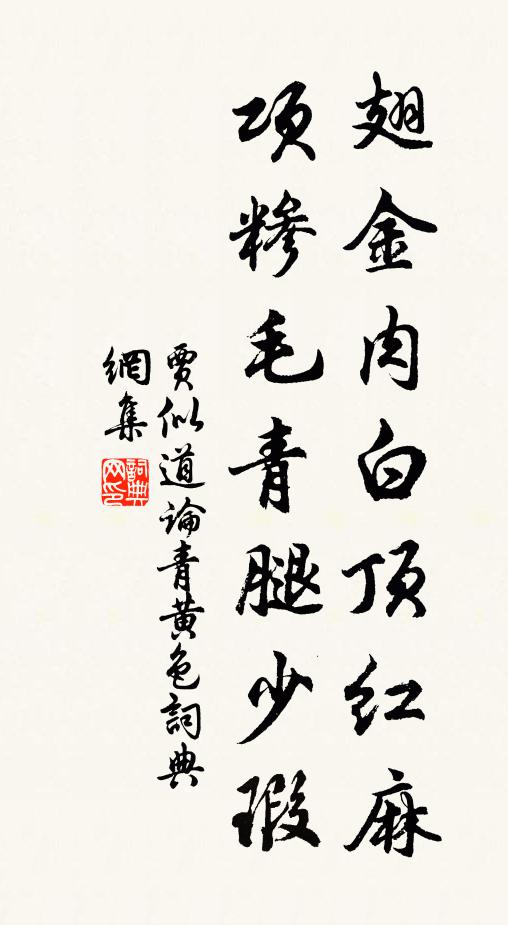 翅金肉白顶红麻
项糁毛青腿少瑕
賈似道論青黄色詞典
網集
詞典
网印